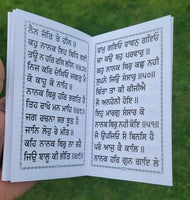 ਨੈਨ ਜੋਤਿ ਤੇ ਹੀਨ ॥
ਕਹੁ ਨਾਨਕ ਇਹ ਬਿਧਿ ਭਈ
ਤਊ ਨ ਹਰਿ ਰਸਿ ਲੀਨ ॥੪੭॥
ਨਿਜ ਕਰਿ ਦੇਖਿਓ ਜਗਤੁ ਮੈ
ਕੋ ਕਾਹੂ ਕੋ ਨਾਹਿ ॥
ਨਾਨਕ ਥਿਰੁ ਹਰਿ ਭਗਤਿ ਹੈ
ਤਿਹ ਰਾਖੋ ਮਨ ਮਾਹਿ ॥੪੮॥
ਜਗ ਰਚਨਾ ਸਭ ਝੂਠ ਹੈ
ਜਾਨਿ ਲੇਹੁ ਰੇ ਮੀਤ ॥
ਕਹਿ ਨਾਨਕ ਥਿਰੁ ਨਾ ਰਹੈ
ਜਿਉ ਬਾਲੂ ਕੀ ਭੀਤਿ ॥੪੯॥
ਰਾਮੁ ਗਇਓ ਰਾਵਨੁ ਗਇਓ
ਜਾ ਕਉ ਬਹੁ ਪਰਵਾਰੁ ॥
ਕਹੁ ਨਾਨਕ ਥਿਰੁ ਕਛੁ ਨਹੀ
ਸੁਪਨੇ ਜਿਉ ਸੰਸਾਰੁ ॥੫੦॥
ਚਿੰਤਾ ਤਾ ਕੀ ਕੀਜੀਐ
ਜੋ ਅਨਹੋਨੀ ਹੋਇ ॥
ਇਹੁ ਮਾਰਗੁ ਸੰਸਾਰ ਕੋ
ਨਾਨਕ ਥਿਰੁ ਨਹੀ ਕੋਇ ॥੫੧॥
ਜੋ ਉਪਜਿਓ ਸੋ ਬਿਨਸਿ ਹੈ
ਪਰੋ ਆਜੁ ਕੈ ਕਾਲਿ ॥
ਨਾਨਕ ਹਰਿ ਗੁਨ ਗਾਇ ਲੇ